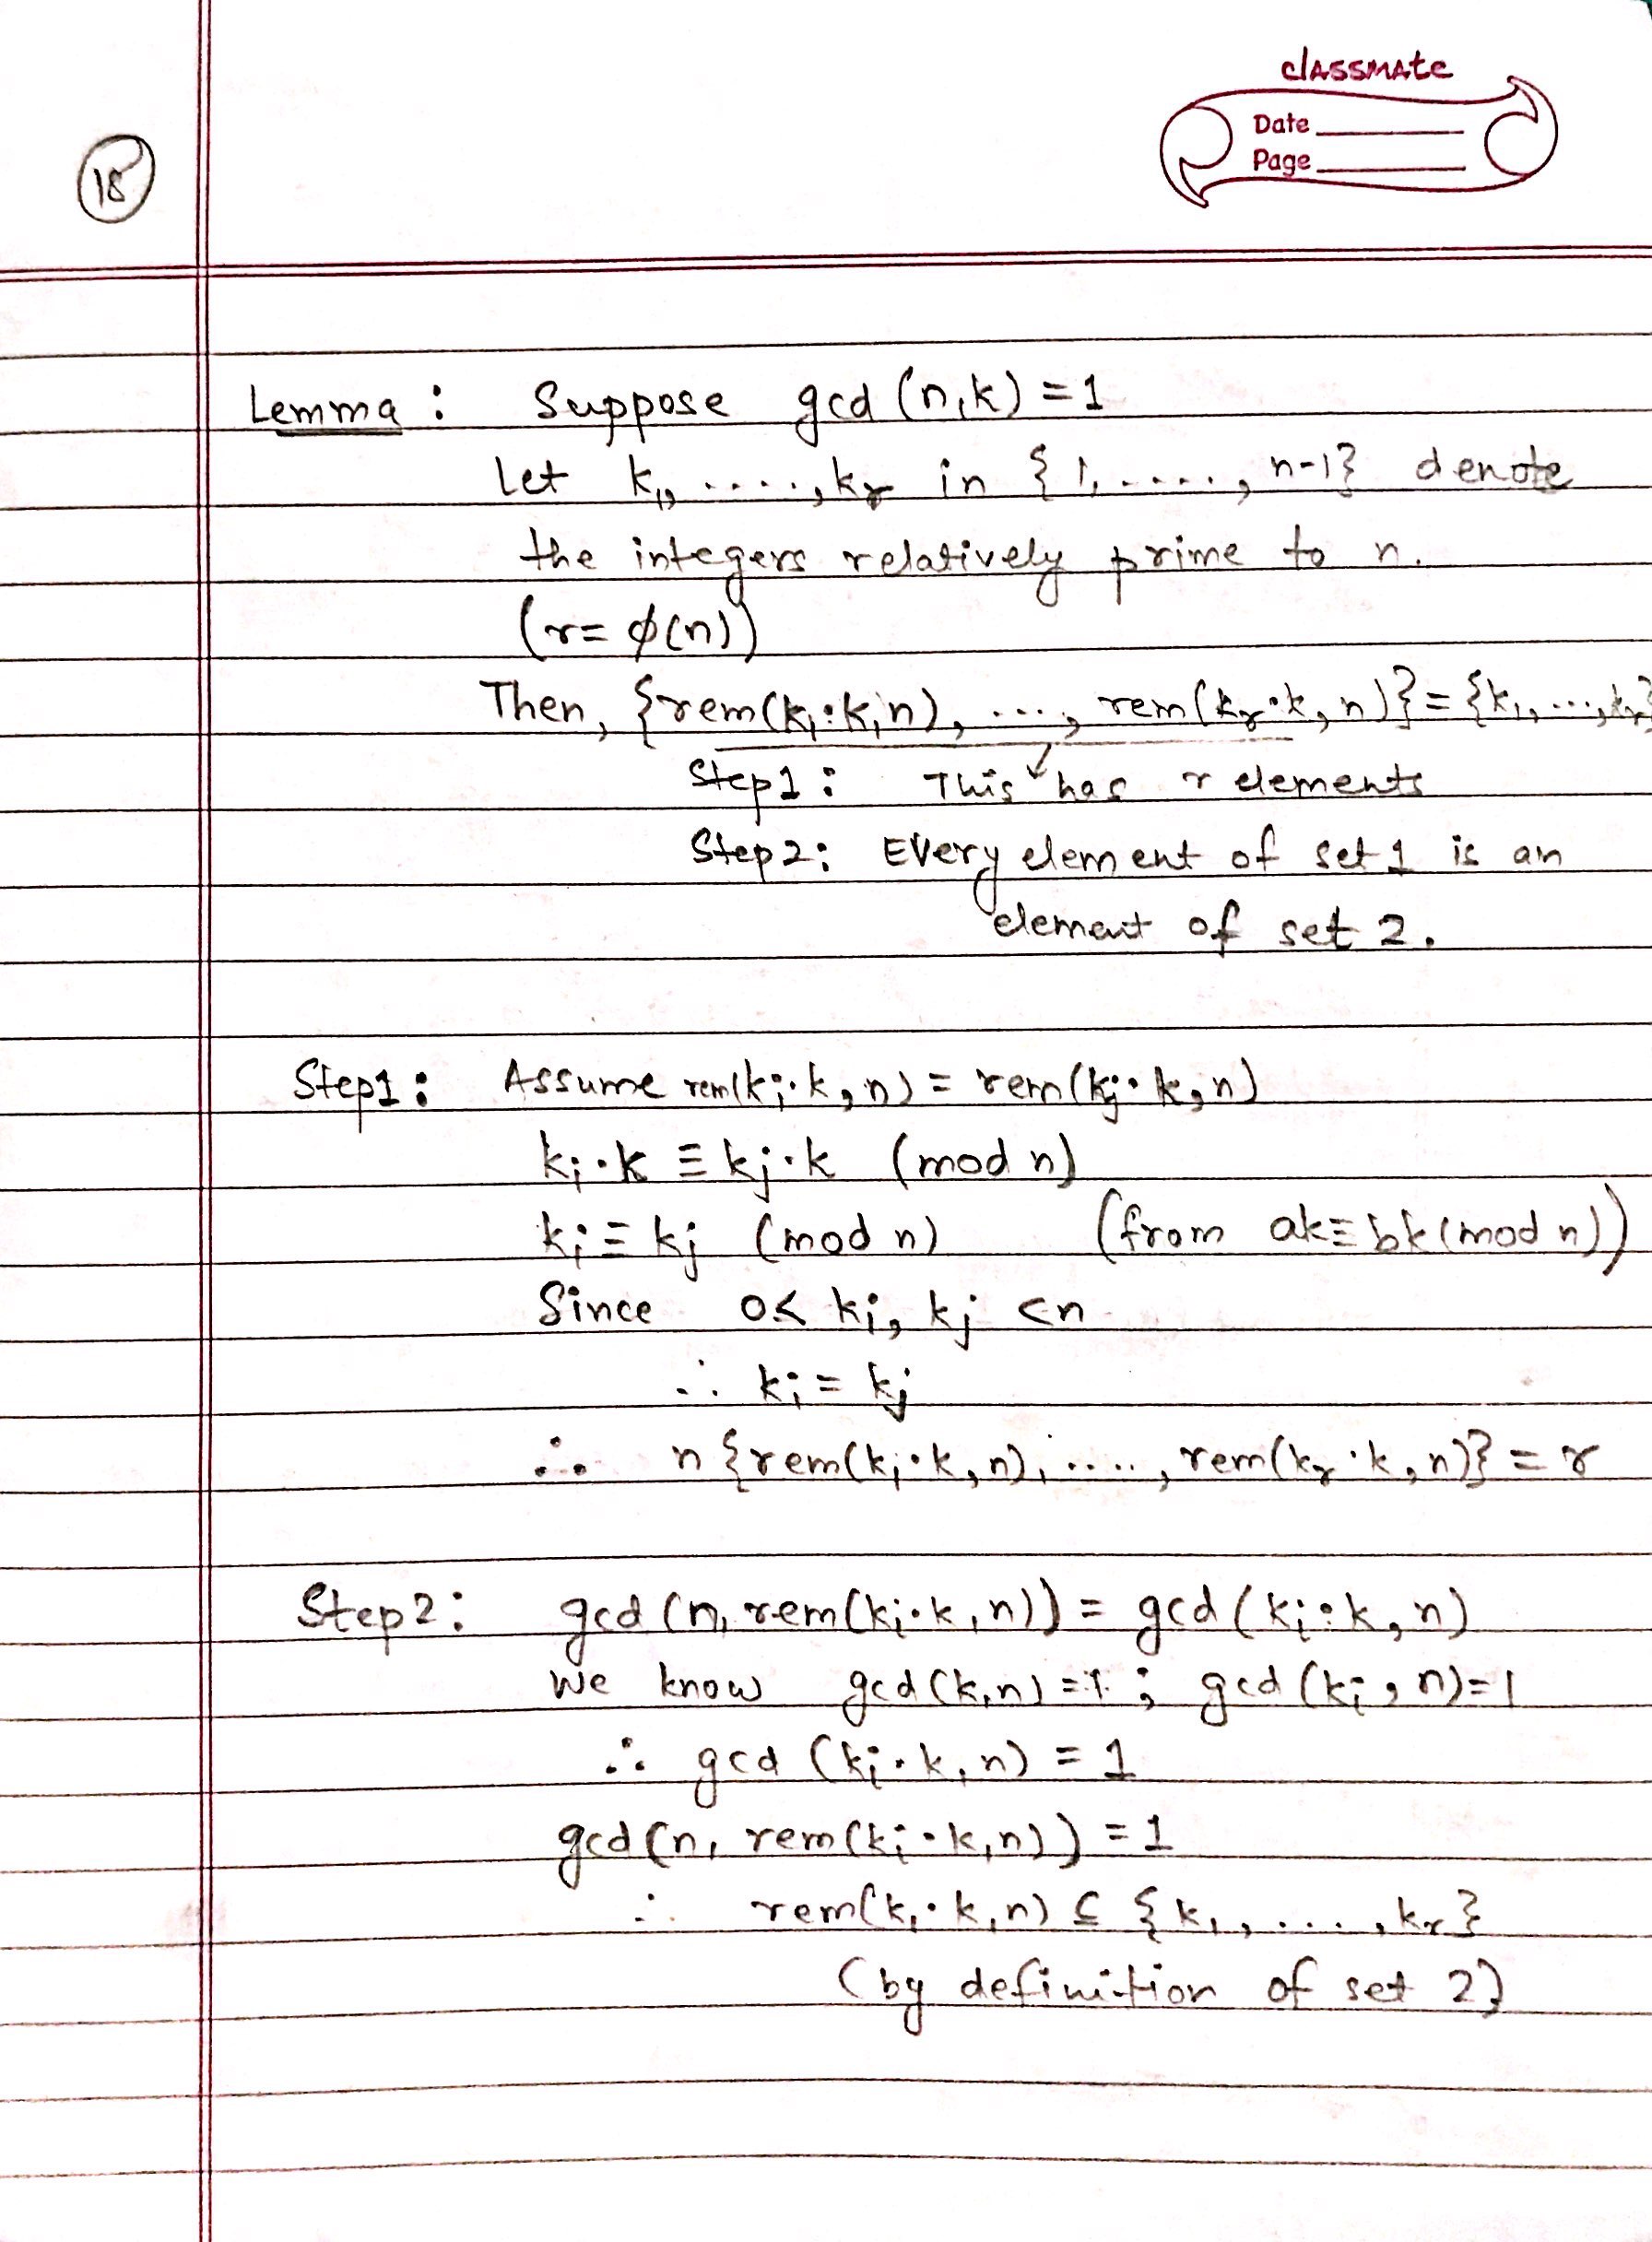 classmate
Date
Page
18
Lemma : Suppose gcd (n,k) = 1
Let k₁, ....., kᵣ in { 1, ....., n-1} denote
the integers relatively prime to n.
(r = ϕ(n))
Then, {rem(k₁·k,n), ..., rem(kᵣ·k, n)} = {k₁, ..., kᵣ}
Step1 : This has r elements
Step 2: Every element of set 1 is an
element of set 2.
Step1 : Assume rem(kᵢ·k, n) = rem(kⱼ·k, n)
kᵢ·k ≡ kⱼ·k (mod n)
kᵢ ≡ kⱼ (mod n) (from ak ≡ bk (mod n))
Since 0< kᵢ, kⱼ <n
∴ kᵢ = kⱼ
∴ n {rem(k₁·k, n), ....., rem(kᵣ·k, n)} = r
Step2: gcd (n, rem(kᵢ·k, n)) = gcd (kᵢ·k, n)
We know gcd (k,n) = 1 ; gcd (kᵢ, n)=1
∴ gcd (kᵢ·k, n) = 1
gcd (n, rem (kᵢ·k,n)) = 1
∴ rem(k₁·k,n) ⊆ { k₁, ....., kᵣ}
(by definition of set 2)